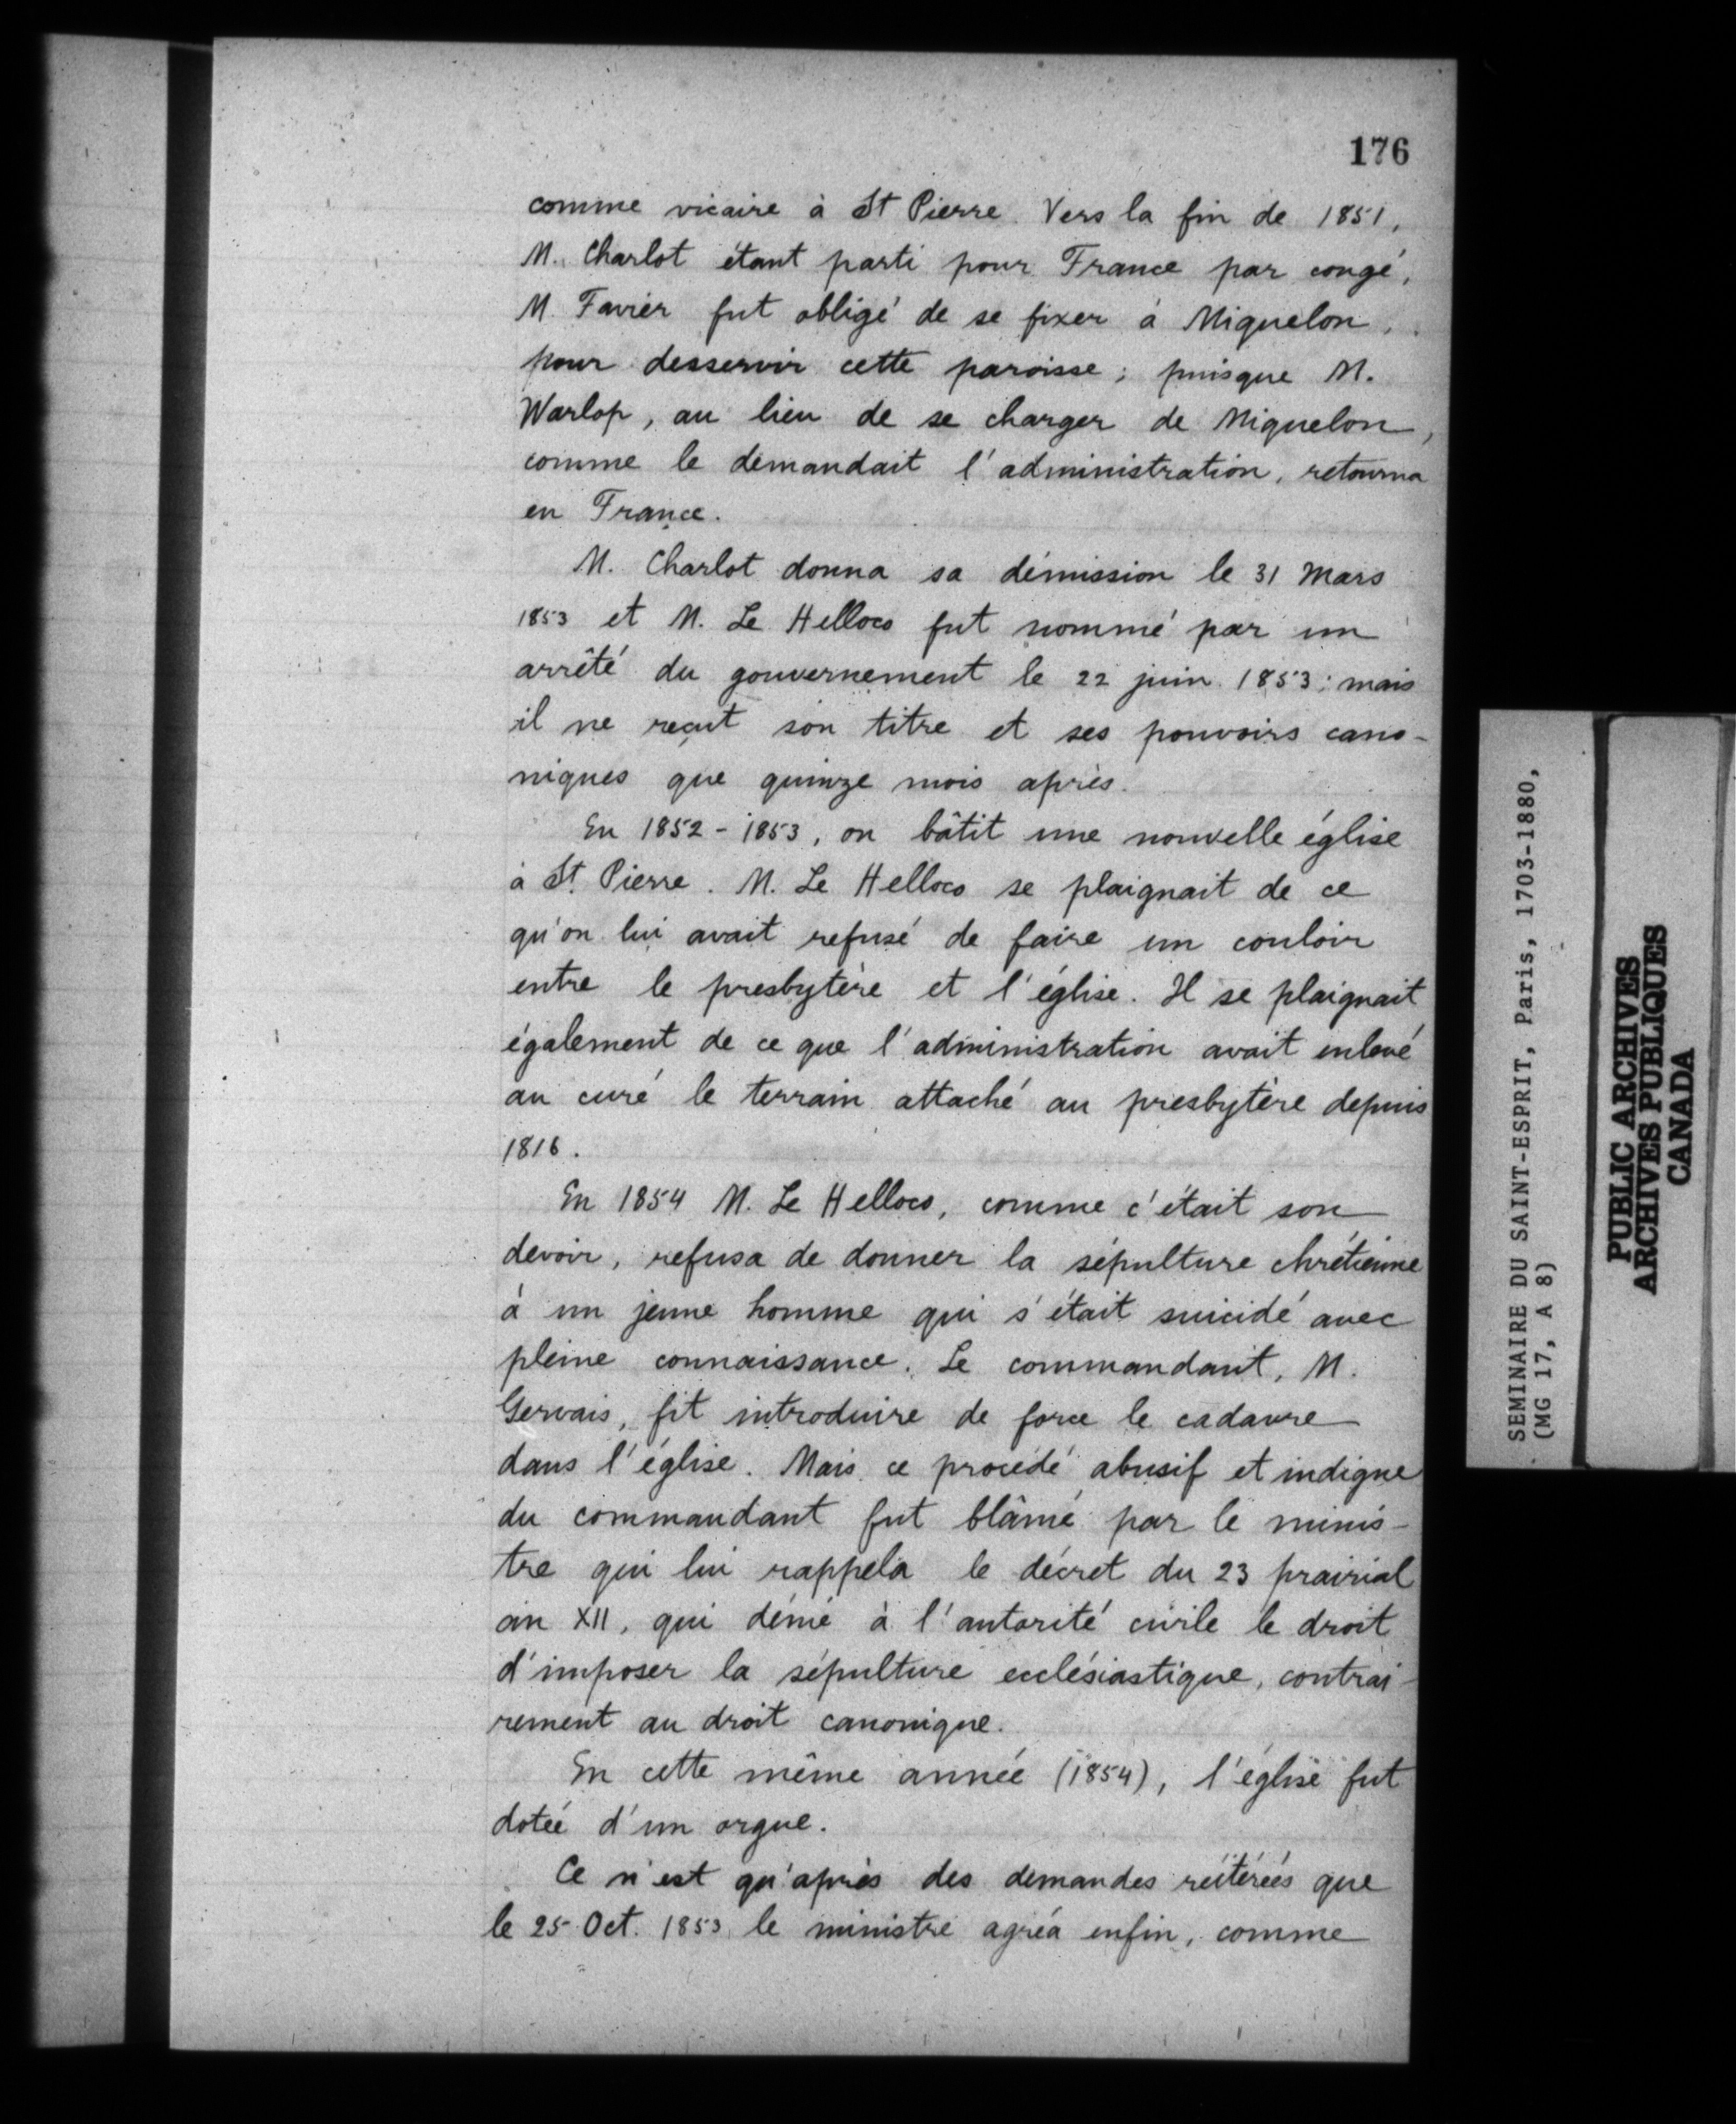 176
comme vicaire à St Pierre. Vers la fin de 1851,
M. Charlot étant parti pour France par congé,
M. Favier fut obligé de se fixer à Miquelon,
pour desservir cette paroisse; puisque M.
Warlop, au lieu de se charger de Miquelon,
comme le demandait l'administration, retourna
en France.
M. Charlot donna sa démission le 31 Mars
1853 et M. Le Helloco fut nommé par un
arrêté du gouvernement le 22 juin 1853: mais
il ne reçut son titre et ses pouvoirs cano-
niques que quinze mois après.
En 1852-1853, on bâtit une nouvelle église
à St. Pierre. M. Le Helloco se plaignait de ce
qu'on lui avait refusé de faire un couloir
entre le presbytère et l'église. Il se plaignait
également de ce que l'administration avait enlevé
au curé le terrain attaché au presbytère depuis
1816.
En 1854 M. Le Helloco, comme c'était son
devoir, refusa de donner la sépulture chrétienne
à un jeune homme qui s'était suicidé avec
pleine connaissance. Le commandant, M.
Gervais, fit introduire de force le cadavre
dans l'église. Mais ce procédé abusif et indigne
du commandant fut blâmé par le minis-
tre qui lui rappela le décret du 23 prairial
an XII, qui dénie à l'autorité civile le droit
d'imposer la sépulture ecclésiastique, contrai-
rement au droit canonique.
En cette même année (1854), l'église fut
dotée d'un orgue.
Ce n'est qu'après des demandes réitérées que
le 25 Oct. 1853 le ministre agréa enfin, comme
SEMINAIRE DU SAINT-ESPRIT, Paris, 1703-1880,
(MG 17, A 8)
PUBLIC ARCHIVES
ARCHIVES PUBLIQUES
CANADA